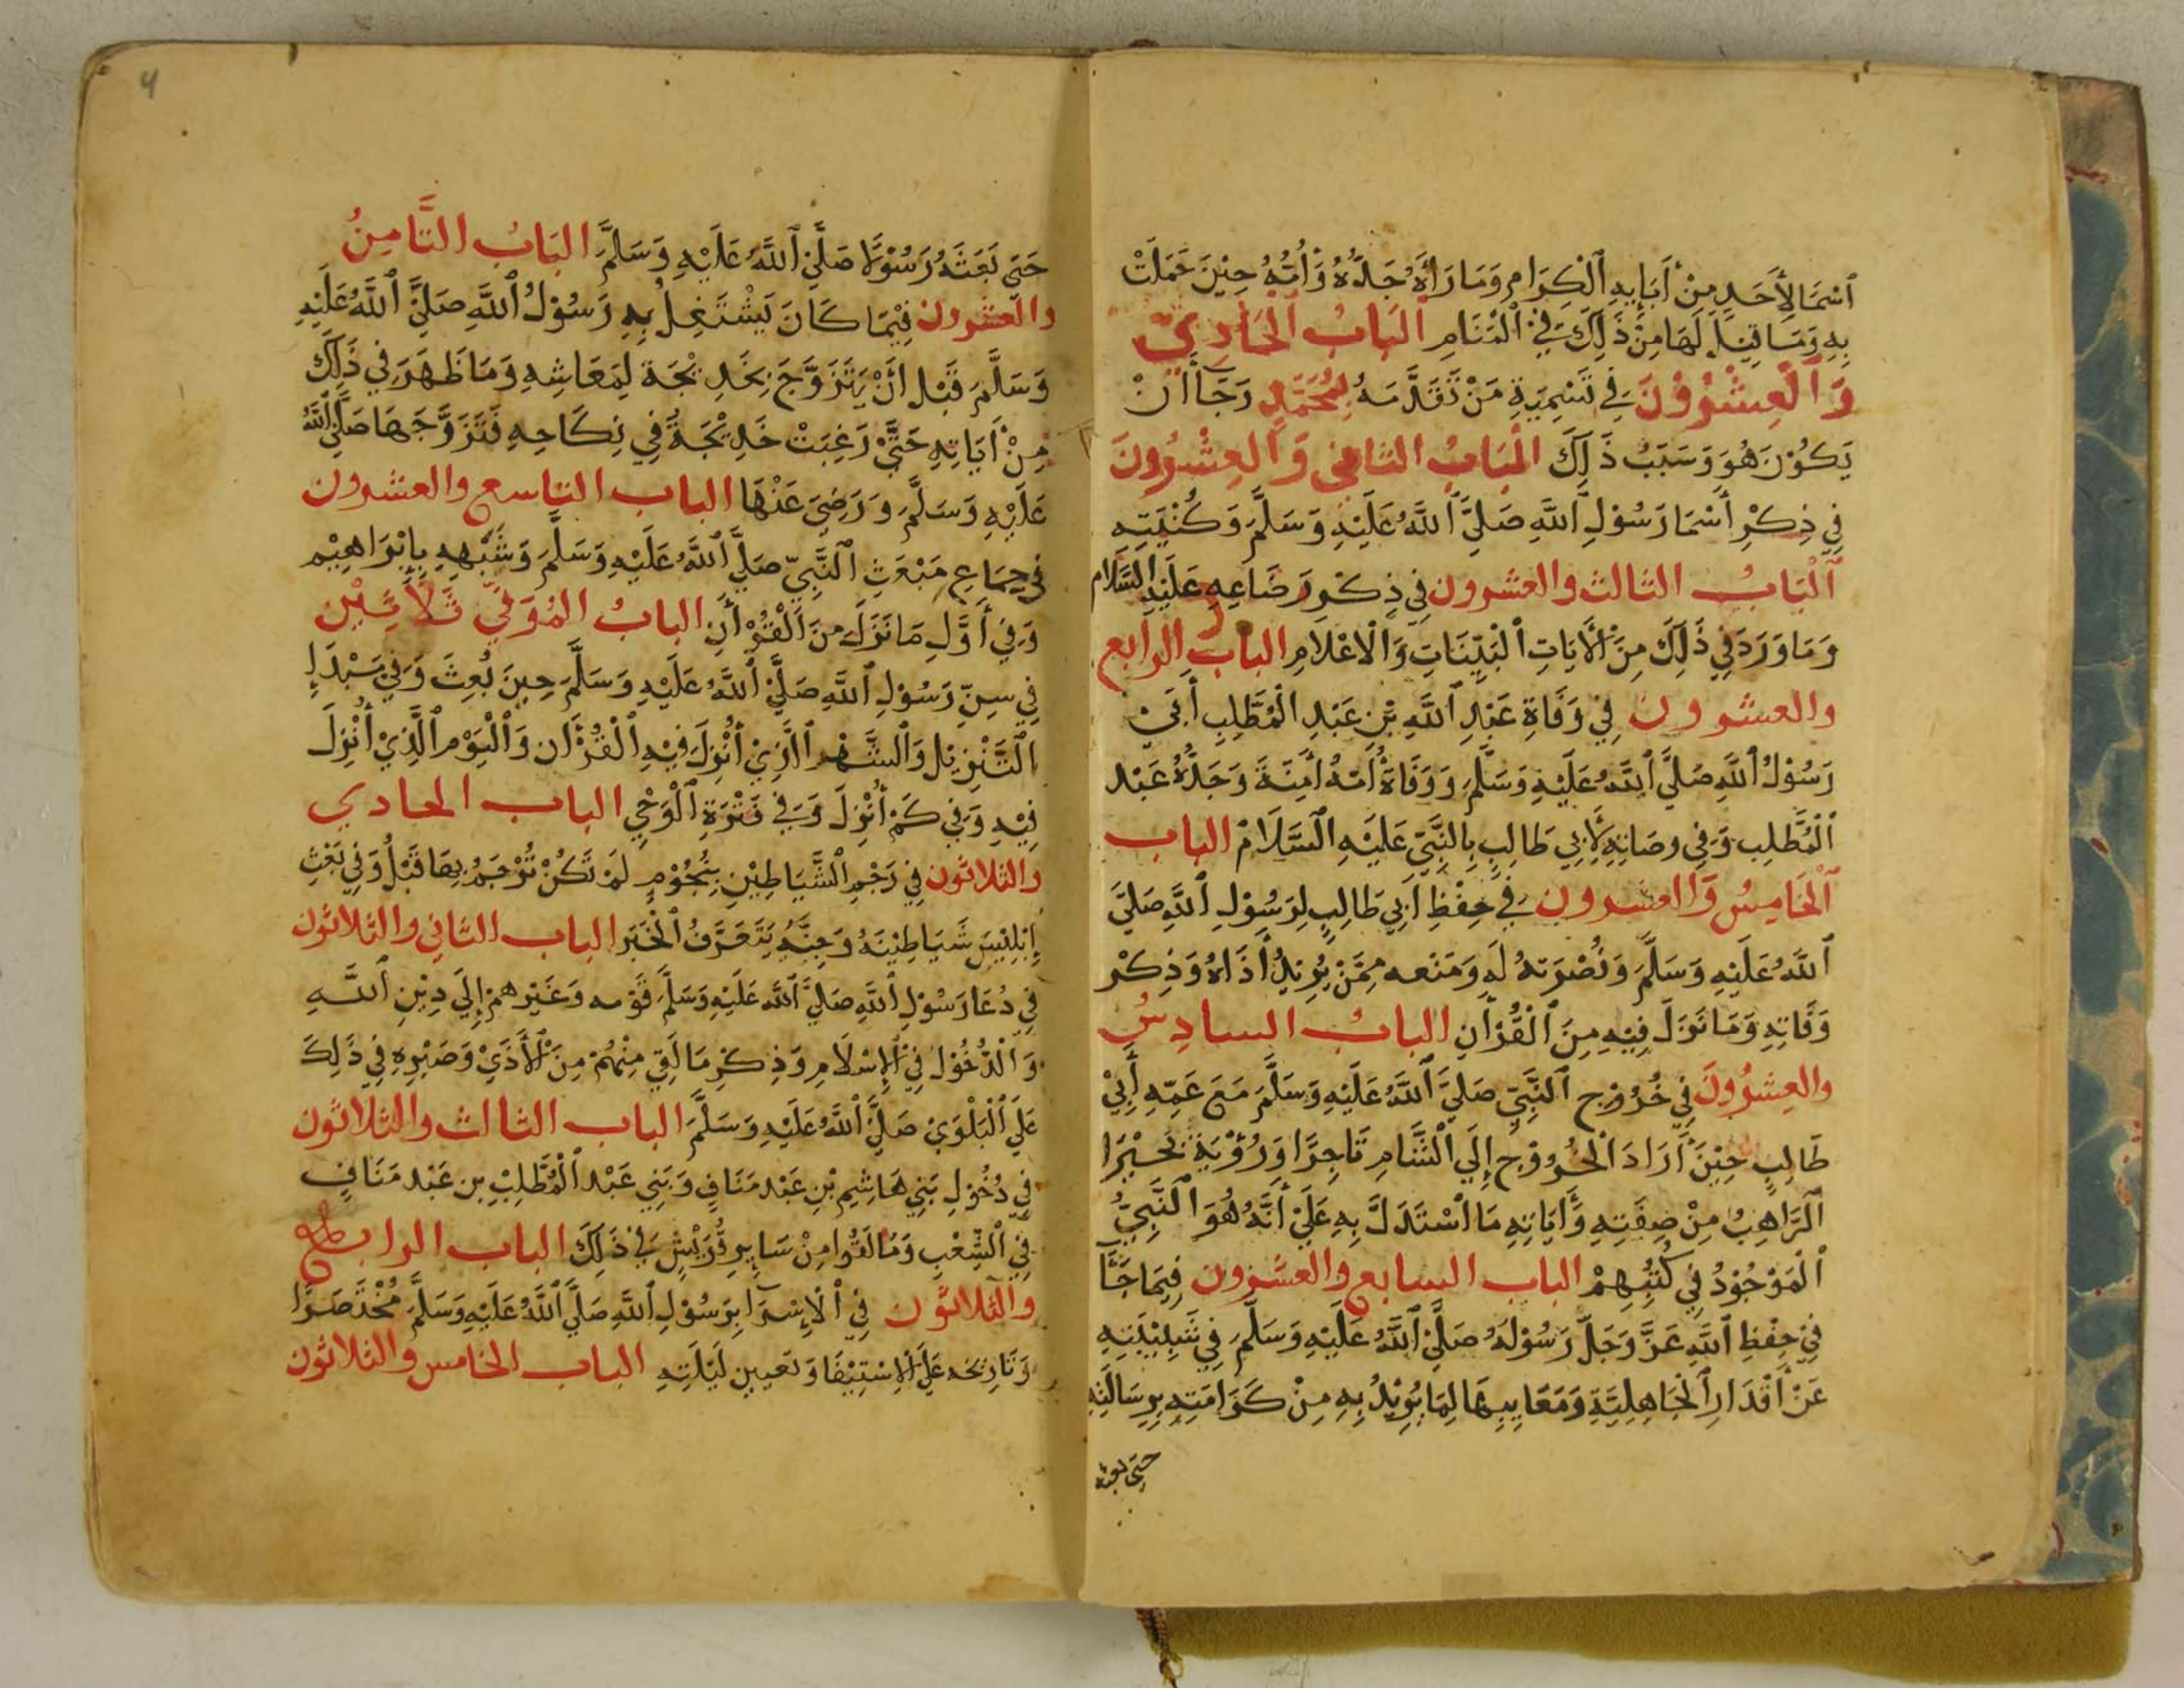 اَسْمَا لِأَحَدٍ مِنْ أَبَايِهِ ٱلْكِرَامِ وَمَا رَاَهُ جَدُّهُ وَاُمُّهُ حِيْنَ حَمَلَتْ
بِهِ وَمَا قِيْلَ لَهَا مِنْ ذَلِكَ فِي ٱلْمَنَامِ ٱلْبَابُ ٱلْحَادِيْ
وَٱلْعِشْرُوْنَ فِي تَسْمِيَةِ مَنْ تَقَدَّمَهُ بِمُحَمَّدٍ رَجَآ أَنْ
يَكُوْنَ هُوَ وَسَبَبُ ذَلِكَ الْبَابُ الثاني وَالْعِشْرُونَ
فِي ذِكْرِ أَسْمَا رَسُوْلِ ٱللَّهِ صَلَّيَ ٱللَّهُ عَلَيْهِ وَسَلَّمَ وَكُنْيَتِهِ
ٱلْبَابُ الثالث والعشرون فِي ذِكْرِ رَضَاعِهِ عَلَيْهِ السَّلَام
وَمَا وَرَدَ فِي ذَلِكَ مِنَ ٱلْأَيَاتِ ٱلْبَيِّنَاتِ وَالْاعْلَامِ الباب الرابع
والعشرون فِي وَفَاةِ عَبْدِ ٱللَّهِ بْنِ عَبْدِ الْمُطَّلِبِ أَبِيْ
رَسُوْلُ ٱللَّهِ صَلَّيَ ٱللَّهُ عَلَيْهِ وَسَلَّمَ وَوَفَاةُ أُمّهُ اَمِنَةَ وَجَدُّهُ عَبْد
ٱلْمُطَّلِب وَفِي وصَاتِهِ لِأَبِي طَالِبٍ بِالنَّبِيِّ عَلَيْهِ ٱلسَّلَامُ الباب
ٱلْخَامِسُ وَالعشرون فِي حِفْظِ اَبِي طَالِبٍ لِرَسُوْلِ ٱللَّهِ صَلَّيَ
ٱللَّهُ عَلَيْهِ وَسَلَّمَ وَنُصْرَتهُ لَهِ وَمَنْعه مِمَّنْ يُرِيْدُ أَذَاهُ وَذِكْر
وَفَاتِهِ وَمَا نَزَلَ فِيْهِ مِنَ ٱلْقُرْأَنِ البابُ السادِسُ
والعِشرُونَ فِي خُرُوْجِ ٱلنَّبِيِّ صَلَّيَ ٱللَّهُ عَلَيْهِ وَسَلَّمَ مَعَ عَمِّهِ أَبِيْ
طَالِبٍ حِيْنَ أَرَادَ الْخُرُوْجَ إِلَي ٱلشَّامِ تَاجِرًا وَرُؤْيَةَ بَحِيْرَا
ٱلرَّاهِبُ مِنْ صِفَتِهِ وَأَيَاتِهِ مَا اسْتَدَلَّ بِهِ عَلَيْ أَنَّهُ هُوَ ٱلنَّبِيُّ
ٱلْمَوْجُوْدُ فِي كُتُبِهِمْ الباب السابع والعشرون فِيمَا جَآ
فِيْ حِفْظِ ٱللَّهِ عَزَّ وَجَلَّ رَسُوْلَهُ صَلَّيَ ٱللَّهُ عَلَيْهِ وَسَلَّمَ فِي شَبِيْبَتِهِ
عَنْ أَقْدَارِ ٱلْجَاهِلِيَّةِ وَمَعَايِبِهَا لِمَا يُرِيْدُ بِهِ مِنْ كَرَامَتِهِ بِرِسَالَتِهِ
حَتَي بعثه
حَتَي بَعَثَهُ رَسُوْلًا صَلَّيَ ٱللَّهُ عَلَيْهِ وَسَلَّمَ البَابُ الثَّامِنُ
والعشرون فِيْمَا كَانَ يَشْتَغِلُ بِهِ رَسُوْلُ ٱللَّهِ صَلَّيَ ٱللَّهُ عَلَيْهِ
وَسَلَّمَ قَبْلَ أَنْ يَتَزَوَّجَ بِخَدِيْجَةَ لِمَعَاشِهِ وَمَا ظَهَرَ فِي ذَلِكَ
مِنْ أَيَاتِهِ حَتَّيْ رَغِبَتْ خَدِيْجَةُ فِي نِكَاحِهِ فَتَزَوَّجَهَا صَلَّيَ ٱللَّهُ
عَلَيْهِ وَسَلَّمَ وَرَضِيَ عَنْهَا الباب التاسع والعشرون
فِي جِمَاعِ مَبْعَثِ ٱلنَّبِيّ صَلَّيَ ٱللَّهُ عَلَيْهِ وَسَلَّمَ وَشَبَهِهِ بِإِبْرَاهِيْم
وَفِي أَوَّلِ مَا نَزَلَ مِنَ ٱلْقُرْأَنِ البابُ المُوَفّي ثَلَاثِيْن
فِي سِنِّ رَسُوْلِ ٱللَّهِ صَلَّيَ ٱللَّهُ عَلَيْهِ وَسَلَّمَ حِيْنَ بُعِثَ وَفِي مَبْدَإِ
التَّنْزِيْل وَٱلشَّهْر ٱلَّذِيْ أُنْزِلَ فِيْهِ ٱلْقُرْأَن وَٱلْيَوْم ٱلَّذِيْ أُنْزِلَ
فِيْهِ وَفِي كَمْ أُنْزِلَ وَفِي فَتْرَةِ ٱلْوَحْيِ الباب الحادي
والثلاثون فِي رَجْمِ ٱلشَّيَاطِيْنِ بِنُجُوْمٍ لَمْ تَكُنْ تُرْجَمُ بِهَا قَبْلُ وَفِي بَعْثِ
إِبْلِيْسَ شَيَاطِيْنَهُ وَجِنَّهُ يَتَعَرَّفُ ٱلْخَبَر الباب الثاني والثلاثون
فِي دُعَا رَسُوْلِ ٱللَّهِ صَلَّيَ ٱللَّه عَلَيْهِ وَسَلَّمَ قَوْمه وَغَيْرهمْ إِلَي دِيْنِ ٱللَّهِ
وَالْدُّخُوْلُ فِيْ ٱلْإِسْلَامِ وَذِكْرِ مَا لَقِيَ مِنْهُمْ مِنَ ٱلْأَذَيْ وَصَبْرِهِ فِي ذَلِكَ
عَلَي ٱلْبَلْوَيْ صَلَّيَ ٱللَّهُ عَلَيْهِ وَسَلَّمَ الباب الثالث والثلاثون
فِي دُخُوْلِ بَنِي هَاشِمِ بْنِ عَبْد مَنَافٍ وَبَنِي عَبْد ٱلْمُطَّلِبْ بن عَبْد مَنَافٍ
فِي ٱلشِّعْبِ وَمَا لَقُوا مِنْ سَايِرِ قُرَيْشٍ فِي ذَلِكَ الباب الرابع
والثلاثون فِي ٱلْإِسْرَا بِرَسُوْلِ ٱللَّهِ صَلَّيَ ٱللَّهُ عَلَيْهِ وَسَلَّمَ مُخْتَصَرًا
وَتَارِيْخه عَلَي ٱلْإسْتِيْفَا وَتَعيين لَيْلَتِهِ الباب الخامس والثلاثون